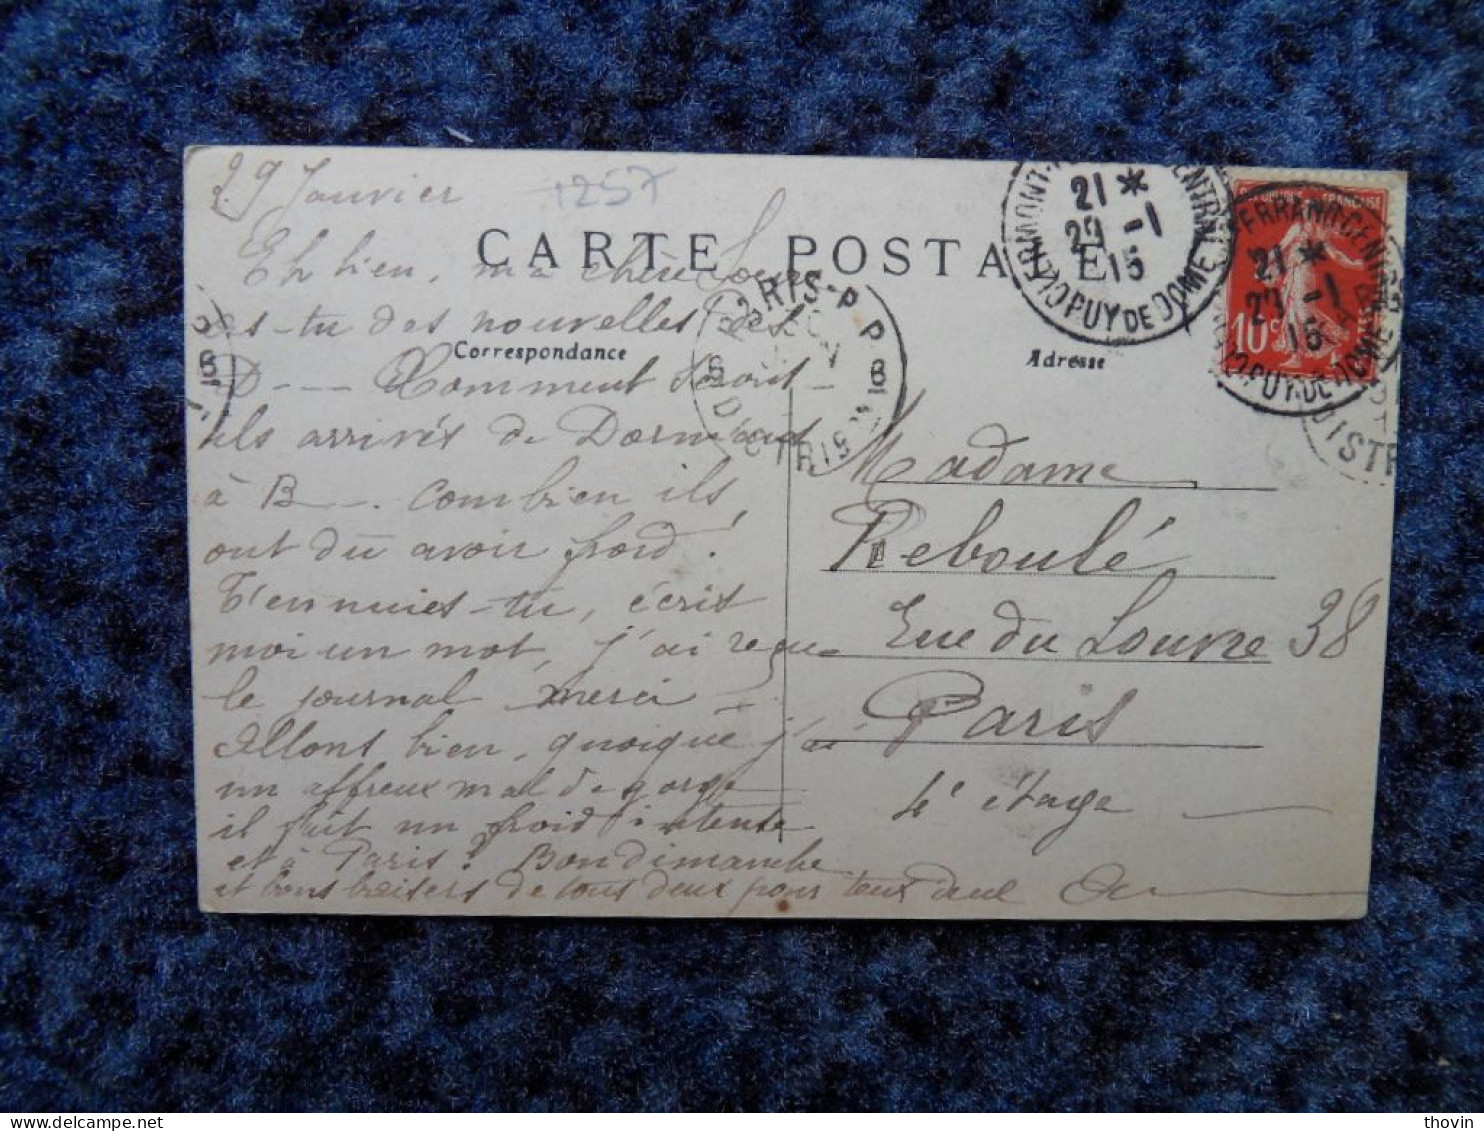 29 Janvier
1257
CARTE POSTALE
Eh bien, ma chère
as-tu des nouvelles des
Correspondance
D--- Comment sont-
ils arrivés de Dormans
à B--. Combien ils
ont dû avoir froid!
T'ennuies-tu, écris
moi un mot, j'ai reçu
le journal merci -
Allons bien, quoique j'ai
un affreux mal de gorge
il fait un froid intense
et à Paris? Bon dimanche
et bons baisers de tous deux pour
Adresse
Madame
Reboulé
Rue du Louvre 38
Paris
4e étage
CLERMONT-FD CENTRAL
21 *
29 -1
15
PUY DE DOME
FERRAND CENTRAL
21 *
29 -1
15
PUY-DE DOME
10c
PARIS-P P
8
DISTRIB
thovin